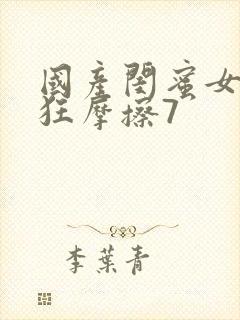 國産閨蜜女
狂摩擦7
李葉青